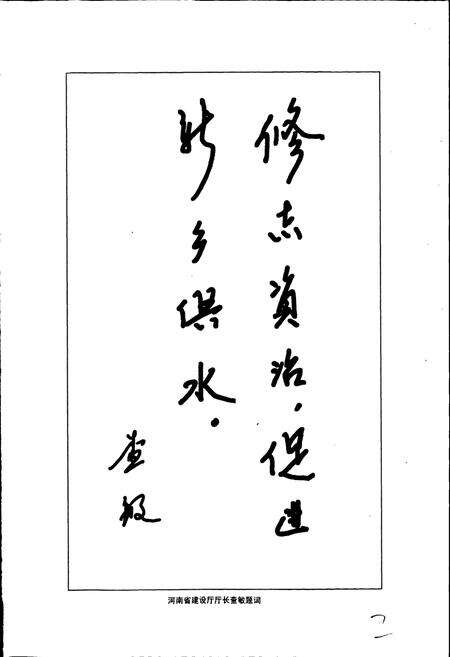 修志资治，促进
新乡供水。
查敏
河南省建设厅厅长查敏题词